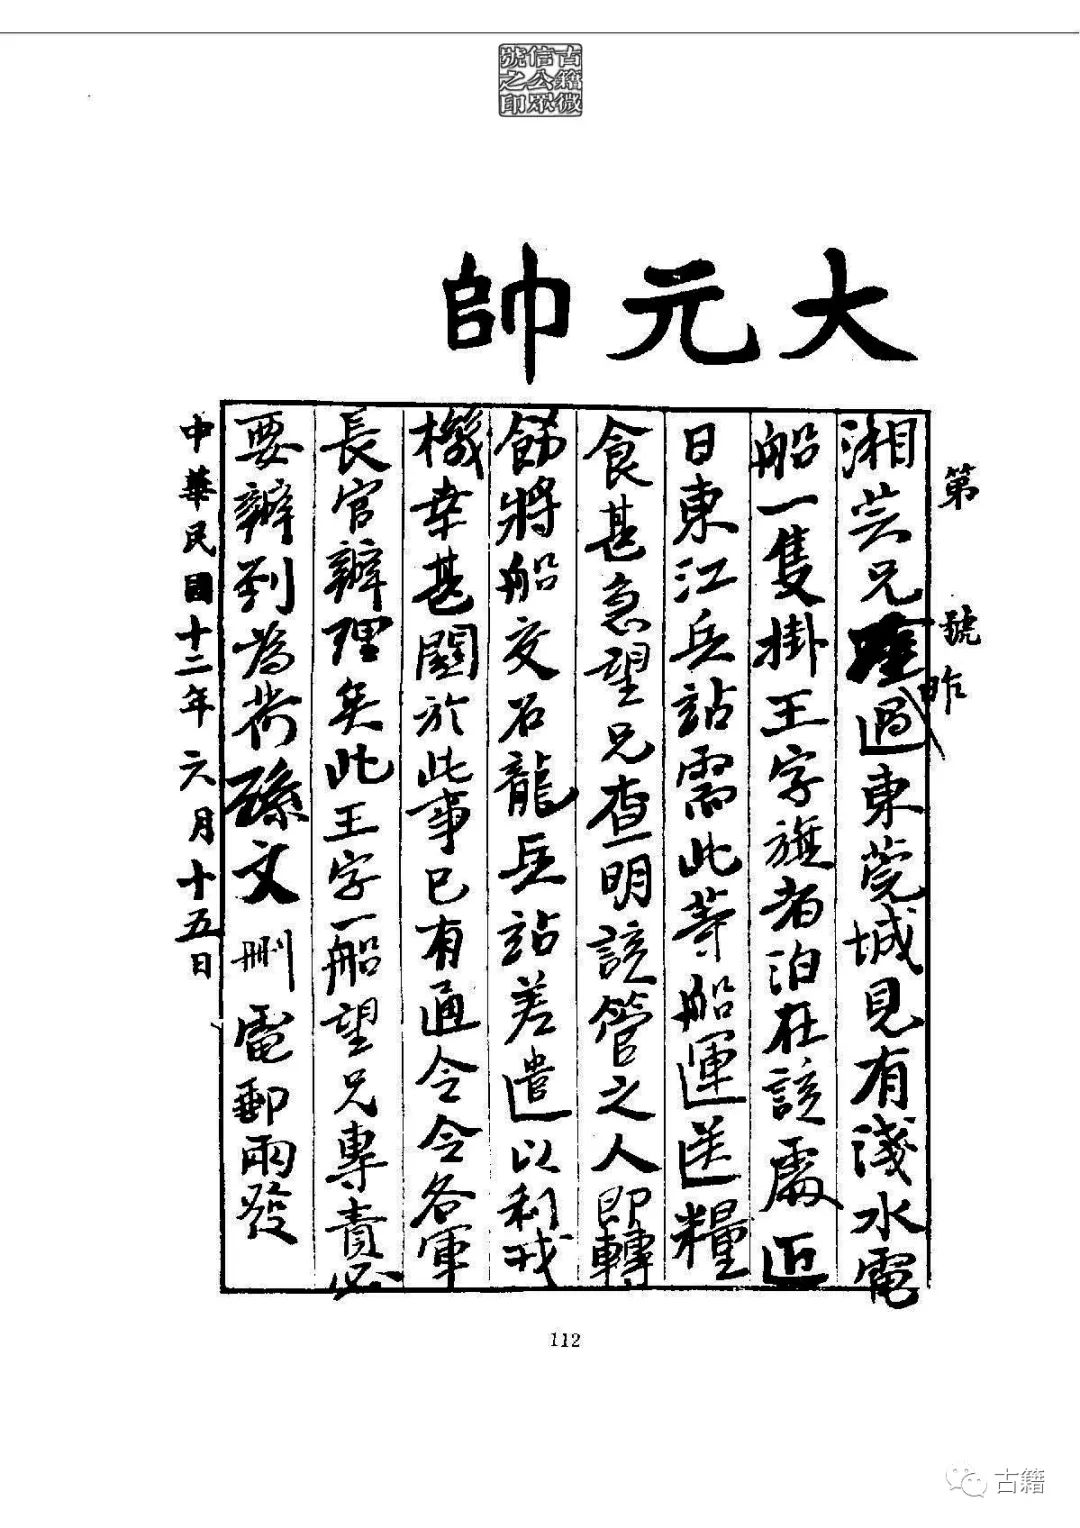 古籍微
信公眾
號之印
大元帥
第 號
昨
湘芸兄過東莞城見有淺水電
船一隻掛王字旗者泊在該處近
日東江兵站需此等船運送糧
食甚急望兄查明該管之人即轉
飭將船交石龍兵站差遣以利戎
機幸甚關於此事已有通令令各軍
長官辦理矣此王字一船望兄專責必
要辦到為荷孫文刪電郵兩發
中華民國十二年六月十五日
112
古籍